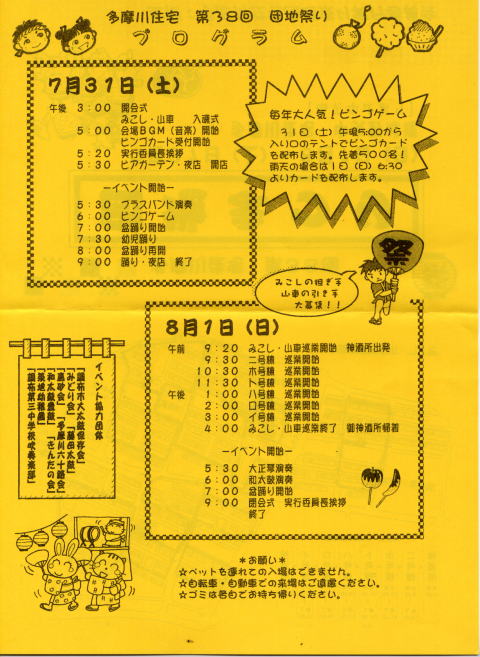 多摩川住宅 第38回 団地祭り
プログラム
7月31日(土)
午後 3:00 開会式
みこし・山車 入魂式
5:00 会場BGM(音楽)開始
ビンゴカード受付開始
5:20 実行委員長挨拶
5:30 ビアガーデン・夜店 開店
ーイベント開始ー
5:30 ブラスバンド演奏
6:00 ビンゴゲーム
7:00 盆踊り開始
7:30 幼児踊り
8:00 盆踊再開
9:00 踊り・夜店 終了
毎年大人気!ビンゴゲーム
31日(土)午後5:00から
入り口のテントでビンゴカード
を配布します。先着500名!
雨天の場合は1日(日)6:30
よりカードを配布します。
祭
みこしの担ぎ手
山車の引き手
大募集!!
8月1日(日)
午前 9:20 みこし・山車巡業開始 神酒所出発
9:30 ニ号棟 巡業開始
10:30 ホ号棟 巡業開始
11:30 ト号棟 巡業開始
午後 1:00 ハ号棟 巡業開始
2:00 ロ号棟 巡業開始
3:00 イ号棟 巡業開始
4:00 みこし・山車巡業終了 御神酒所帰着
ーイベント開始ー
5:30 大正琴演奏
6:00 和太鼓演奏
7:00 盆踊り開始
9:00 閉会式 実行委員長挨拶
終了
イベント協力団体
「調布市大太鼓保存会」
「みどり会」「藤田太鼓」
「高砂会」「多摩川六十路会」
「和太鼓豊鼓」「きんだの会」
「栗地幼稚園」
「調布第三中学校吹奏楽部」
*お願い*
☆ペットを連れての入場はできません。
☆自転車・自動車での来場はご遠慮ください。
☆ゴミは各自でお持ち帰りください。